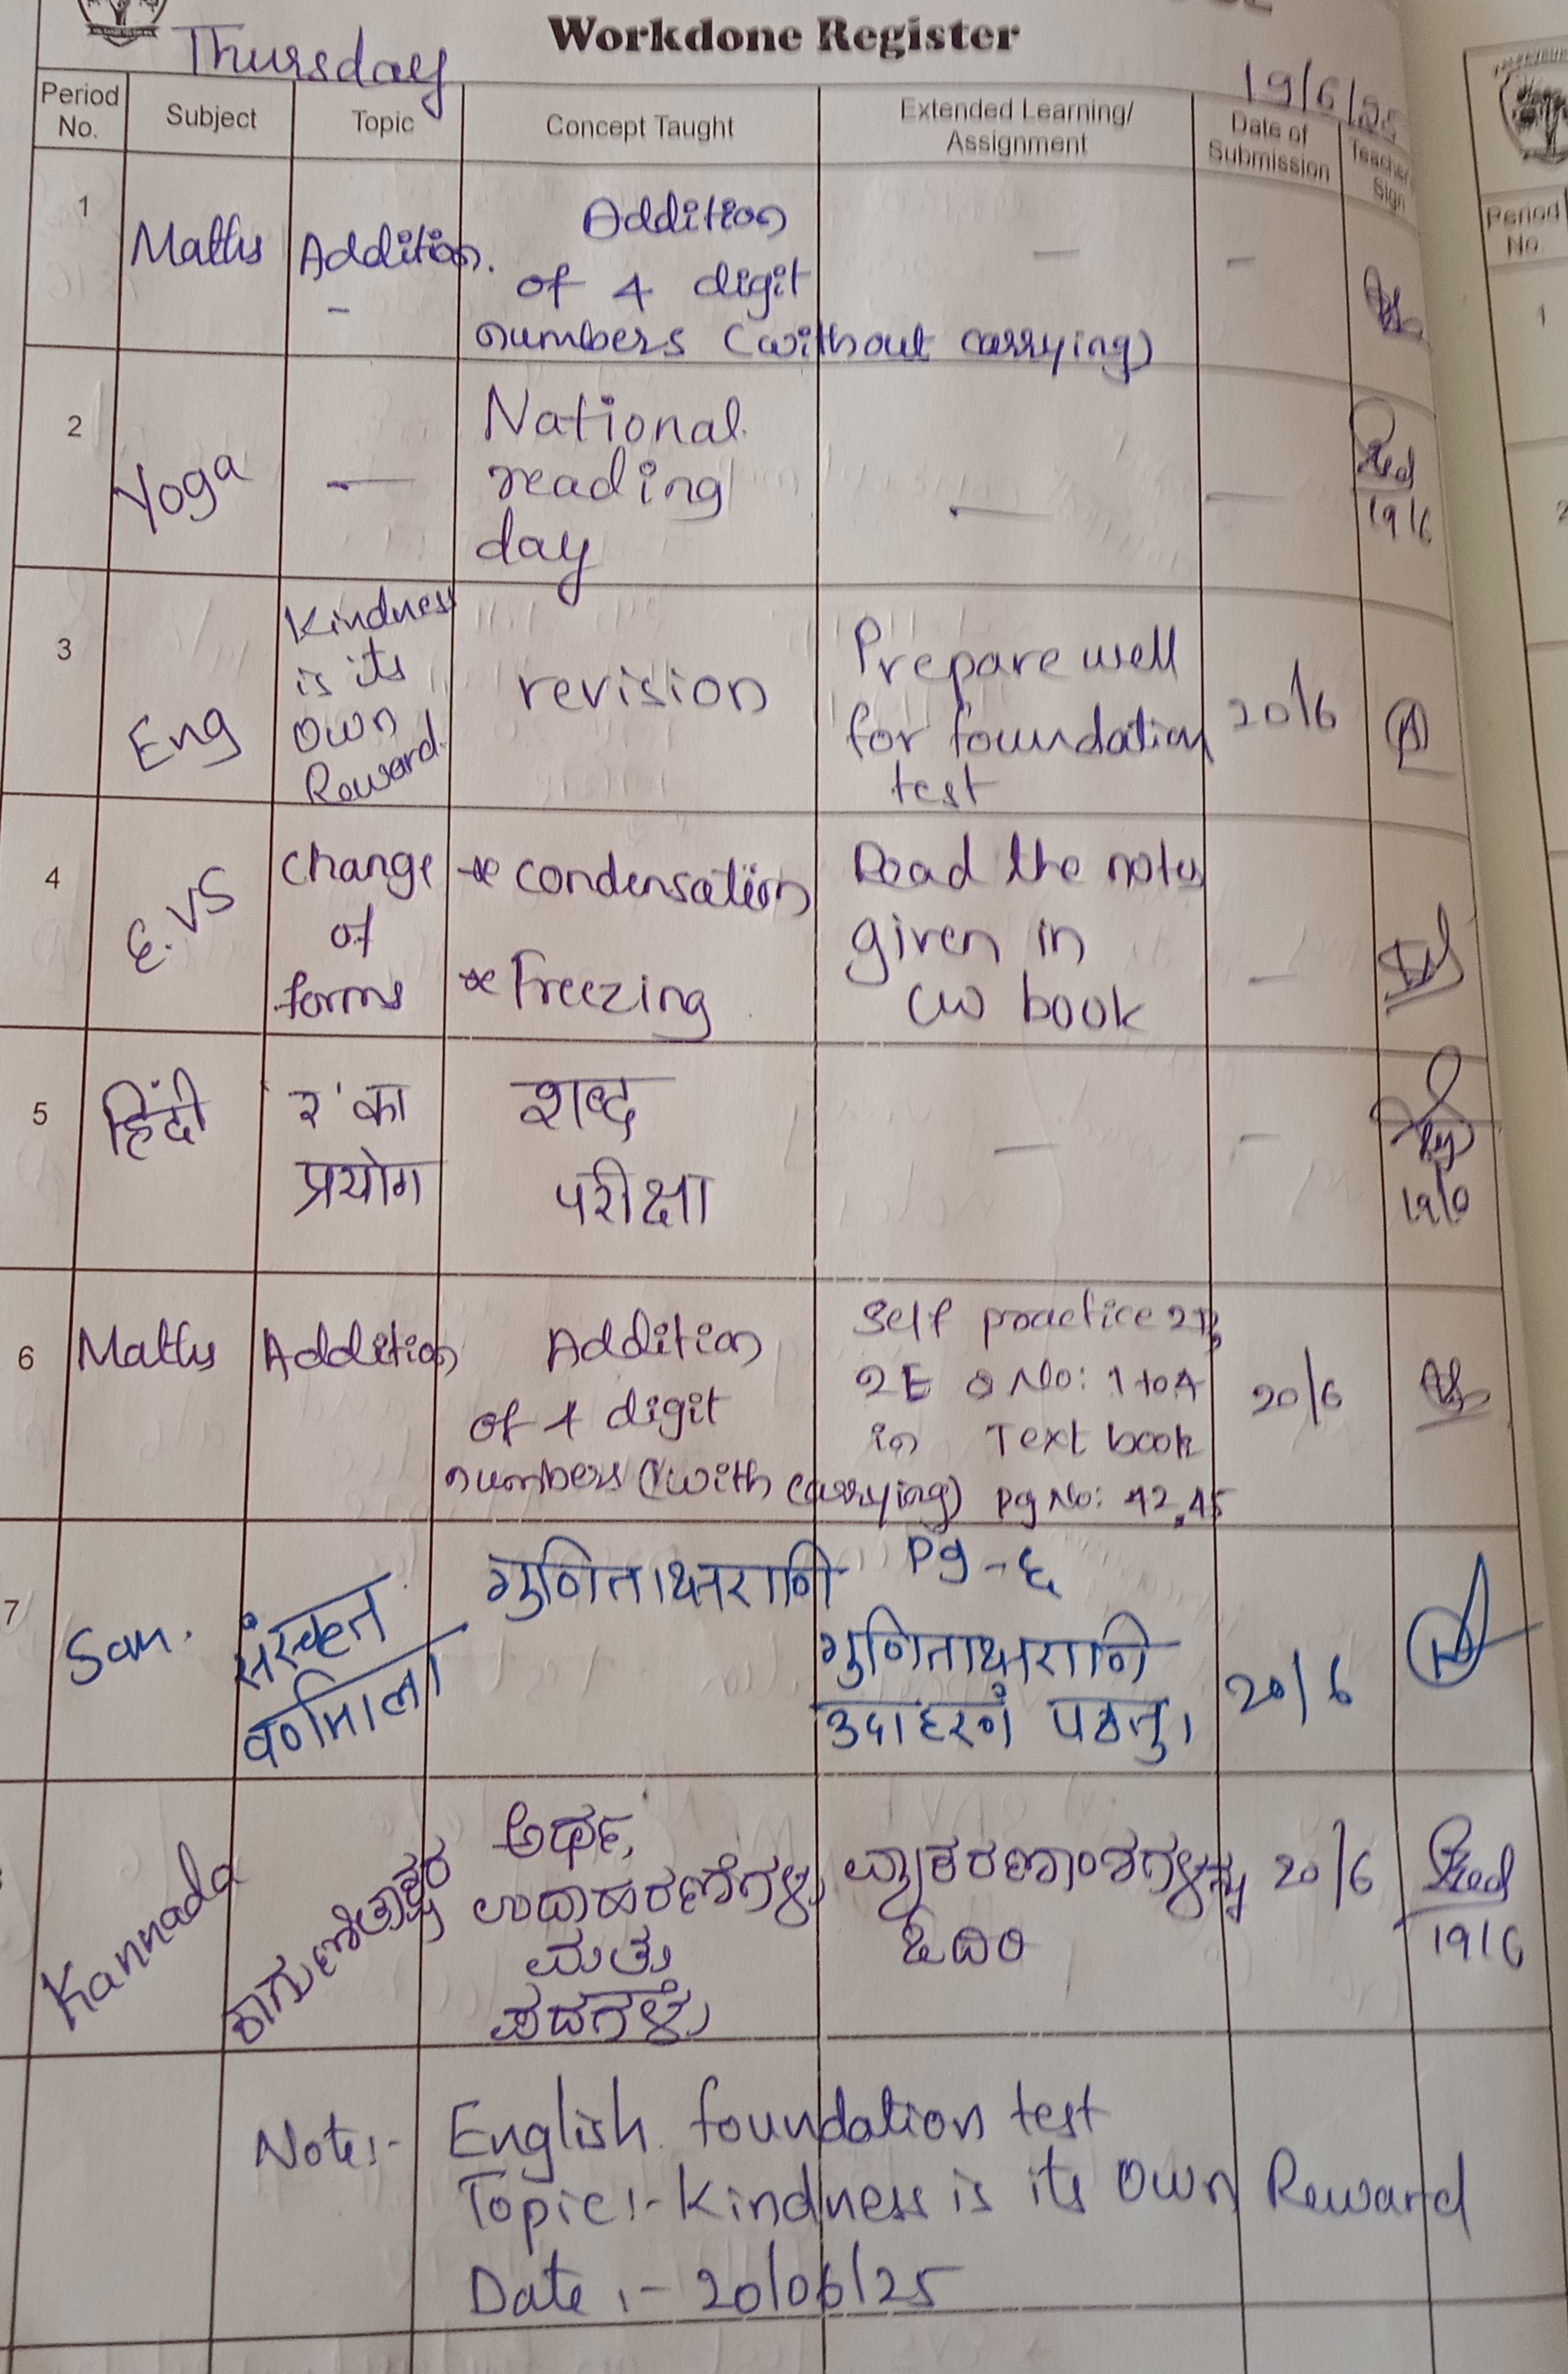 Workdone Register
Thursday
19/6/25
Period No.
Subject
Topic
Concept Taught
Extended Learning/ Assignment
Date of Submission
Teacher Sign
1
Maths
Addition.
-
Addition
of 4 digit
numbers (without carrying)
-
-
2
Yoga
-
National
reading
day
-
-
19/6
3
Eng
Kindness
is its
own
Reward.
revision
Prepare well
for foundation
test
20/6
4
E.VS
Change
of
forms
* Condensation
* Freezing
Read the notes
given in
CW book
-
5
हिंदी
'र' का
प्रयोग
शब्द
परीक्षा
-
-
19/6
6
Maths
Addition
Addition
of 4 digit
numbers (with carrying)
Self practice 2D,
2E Q No: 1 to 4
in Text book
pg No: 42,45
20/6
7
San.
संस्कृत
वर्णमाला
गुणिताक्षराणि
Pg - ६
गुणिताक्षराणि
उदाहरणं पठतु।
20/6
Kannada
ಕಾಗುಣಿತಾಕ್ಷರ
ಅರ್ಥ,
ಉದಾಹರಣೆಗಳು,
ಮತ್ತು
ಪದಗಳು
ವ್ಯಾಕರಣಾಂಶಗಳನ್ನು
ಓದಿರಿ
20/6
19/6
Note:-
English foundation test
Topic:- Kindness is its own Reward
Date :- 20/06/25
Period No.
1
2